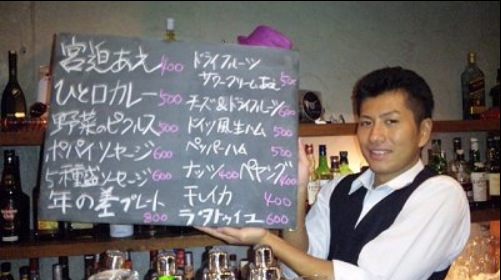 宮迫あえ 400
ひと口カレー 500
野菜のピクルス 500
ポパイソセージ 600
5種盛ソセージ 600
年の差プレート 800
ドライフルーツ
サワークリームあえ 500
チーズ&ドライフルーツ 600
ドイツ風生ハム 500
ペッパーハム 500
ナッツ 400 ペヤング 400
モレイカ
ラタトゥイユ 600